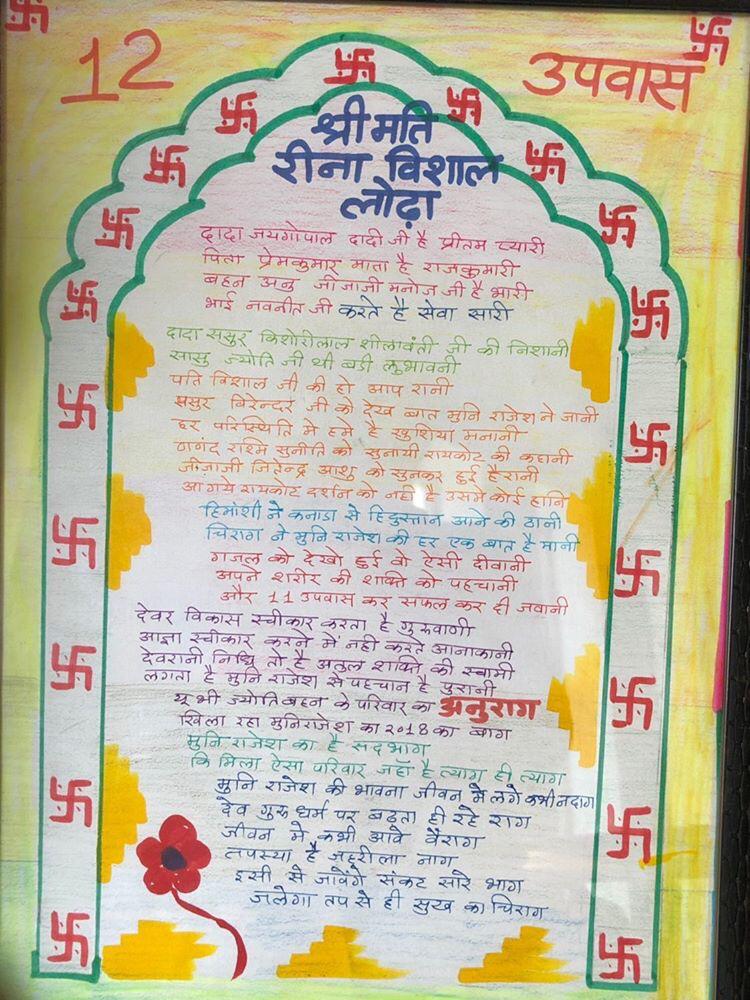 12 उपवास
श्रीमति
रीना विशाल
लोढ़ा
दादा जयगोपाल दादी जी है प्रीतम प्यारी
पिता प्रेमकुमार माता है राजकुमारी
बहन अनु जीजाजी मनोज जी है भारी
भाई नवनीत जी करते है सेवा सारी
दादा ससुर किशोरीलाल शीलावंती जी की निशानी
सासु ज्योति जी थी बडी लुभावनी
पति विशाल जी की हो आप रानी
ससुर विरेन्दर जी को देख बात मुनि राजेश ने जानी
हर परिस्थिति मे हमे है खुशियां मनानी
ठानंद रश्मि सुनीति को सुनायी रायकोट की कहानी
जीजाजी जितेन्द्र आशु को सुनकर हुई हैरानी
आ गये रायकोट दर्शन को नही है उसमे कोई हानि
हिमांशी ने कनाडा से हिदुस्तान आने की ठानी
चिराग ने मुनि राजेश की हर एक बात है मानी
गजल को देखो हुई वो ऐसी दीवानी
अपने शरीर की शक्ति को पहचानी
और 11 उपवास कर सफल कर दी जवानी
देवर विकास स्वीकार करता है गुरुवाणी
आज्ञा स्वीकार करने में नही करते आनाकानी
देवरानी निधि तो है अतुल शक्ति की स्वामी
लगता है मुनि राजेश से पहचान है पुरानी
यू भी ज्योति बहन के परिवार का अनुराग
खिला रहा मुनिराजेश का २०18 का बाग
मुनि राजेश का है सदभाग
कि मिला ऐसा परिवार जहाँ है त्याग ही त्याग
मुनि राजेश की भावना जीवन मे लगे कभी न दाग
देव गुरु धर्म पर बढ़ता ही रहे राग
जीवन मे कभी आवे वैराग
तपस्या है जहरीला नाग
इसी से जावेंगे संकट सारे भाग
जलेगा तप से ही सुख का चिराग